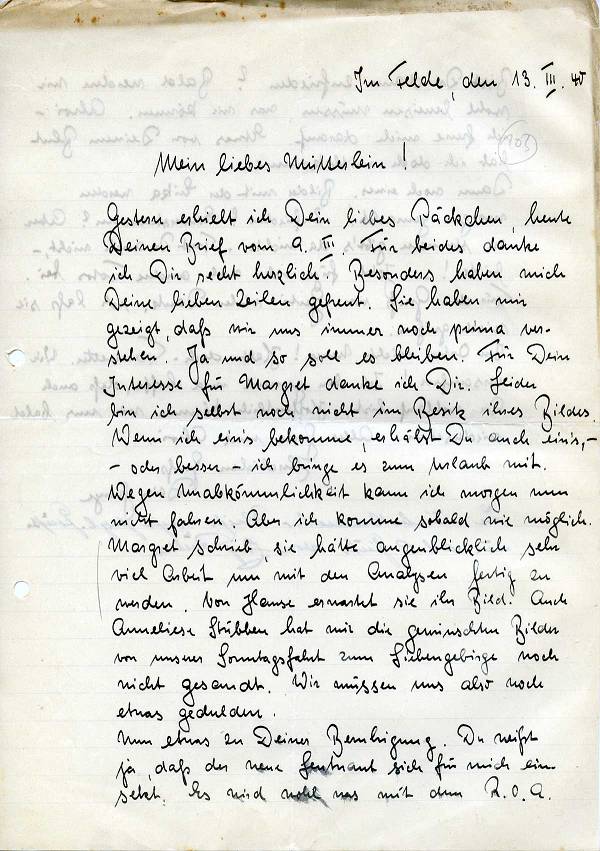 Im Felde, den 13. III. 40
103
Mein liebes Mütterlein!
Gestern erhielt ich Dein liebes Päckchen, heute
Deinen Brief vom 9. III. Für beides danke
ich Dir recht herzlich. Besonders haben mich
Deine lieben Zeilen gefreut. Sie haben mir
gezeigt, daß wir uns immer noch prima ver-
stehen. Ja und so soll es bleiben. Für Dein
Interesse für Margret danke ich Dir. Leider
bin ich selbst noch nicht im Besitz ihres Bildes.
Wenn ich eins bekomme, erhälst Du auch eins,-
- oder besser - ich bringe es zum Urlaub mit.
Wegen Unabkömmlichkeit kann ich morgen nun
nicht fahren. Aber ich komme sobald wie möglich.
Margret schrieb, sie hätte augenblicklich sehr
viel Arbeit um mit den Analysen fertig zu
werden. Von Hause erwartet sie ihr Bild. Auch
Anneliese Stübben hat mir die gewünschten Bilder
von unserer Sonntagsfahrt zum Siebengebirge noch
nicht gesandt. Wir müssen uns also noch
etwas gedulden.
Nun etwas zu Deiner Beruhigung. Du weißt
ja, daß der neue Leutnant sich für mich ein-
setzt. Es wird wohl was mit dem R.O.A.